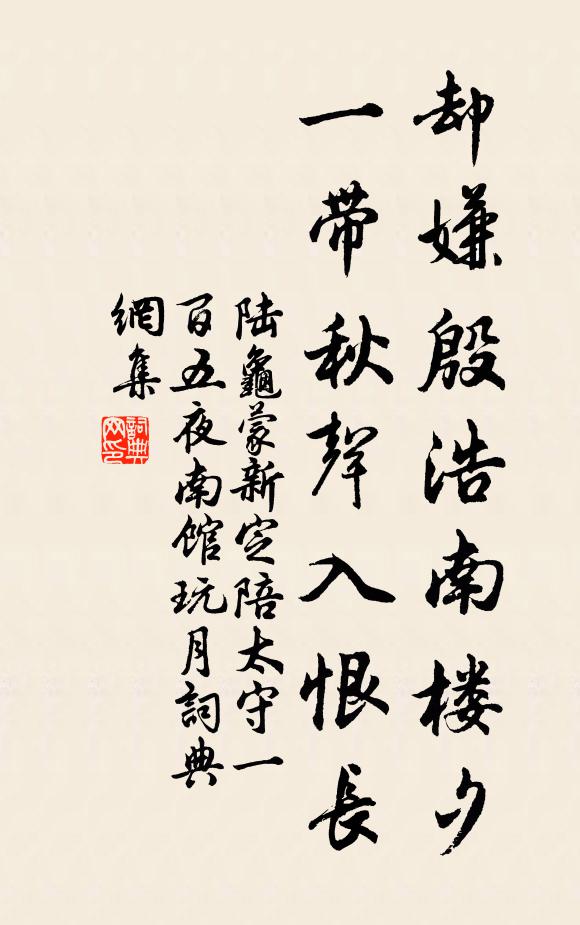 却嫌殷浩南楼夕
一帶秋聲入恨長
陆龜蒙新定陪太守一
百五夜南馆玩月詞典
網集
詞典
网印